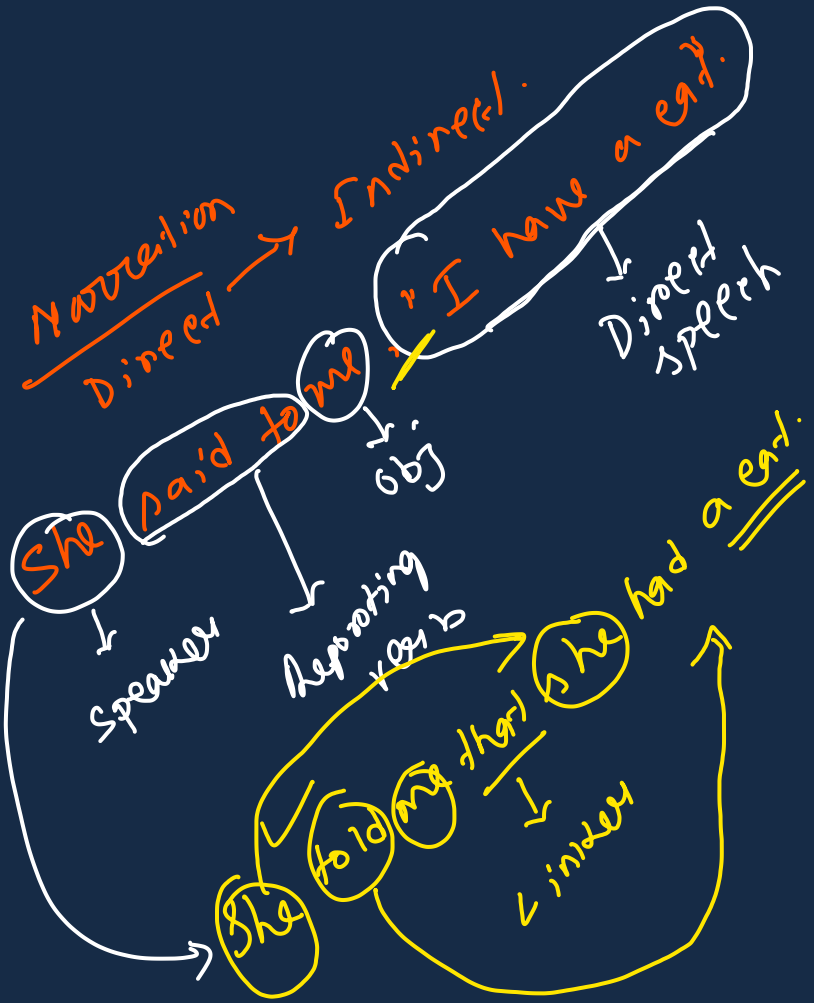 Narration
Direct → Indirect.
She said to me, "I have a cat."
Speaker
Reporting verb
obj
Direct speech
She told me that she had a cat.
Linker